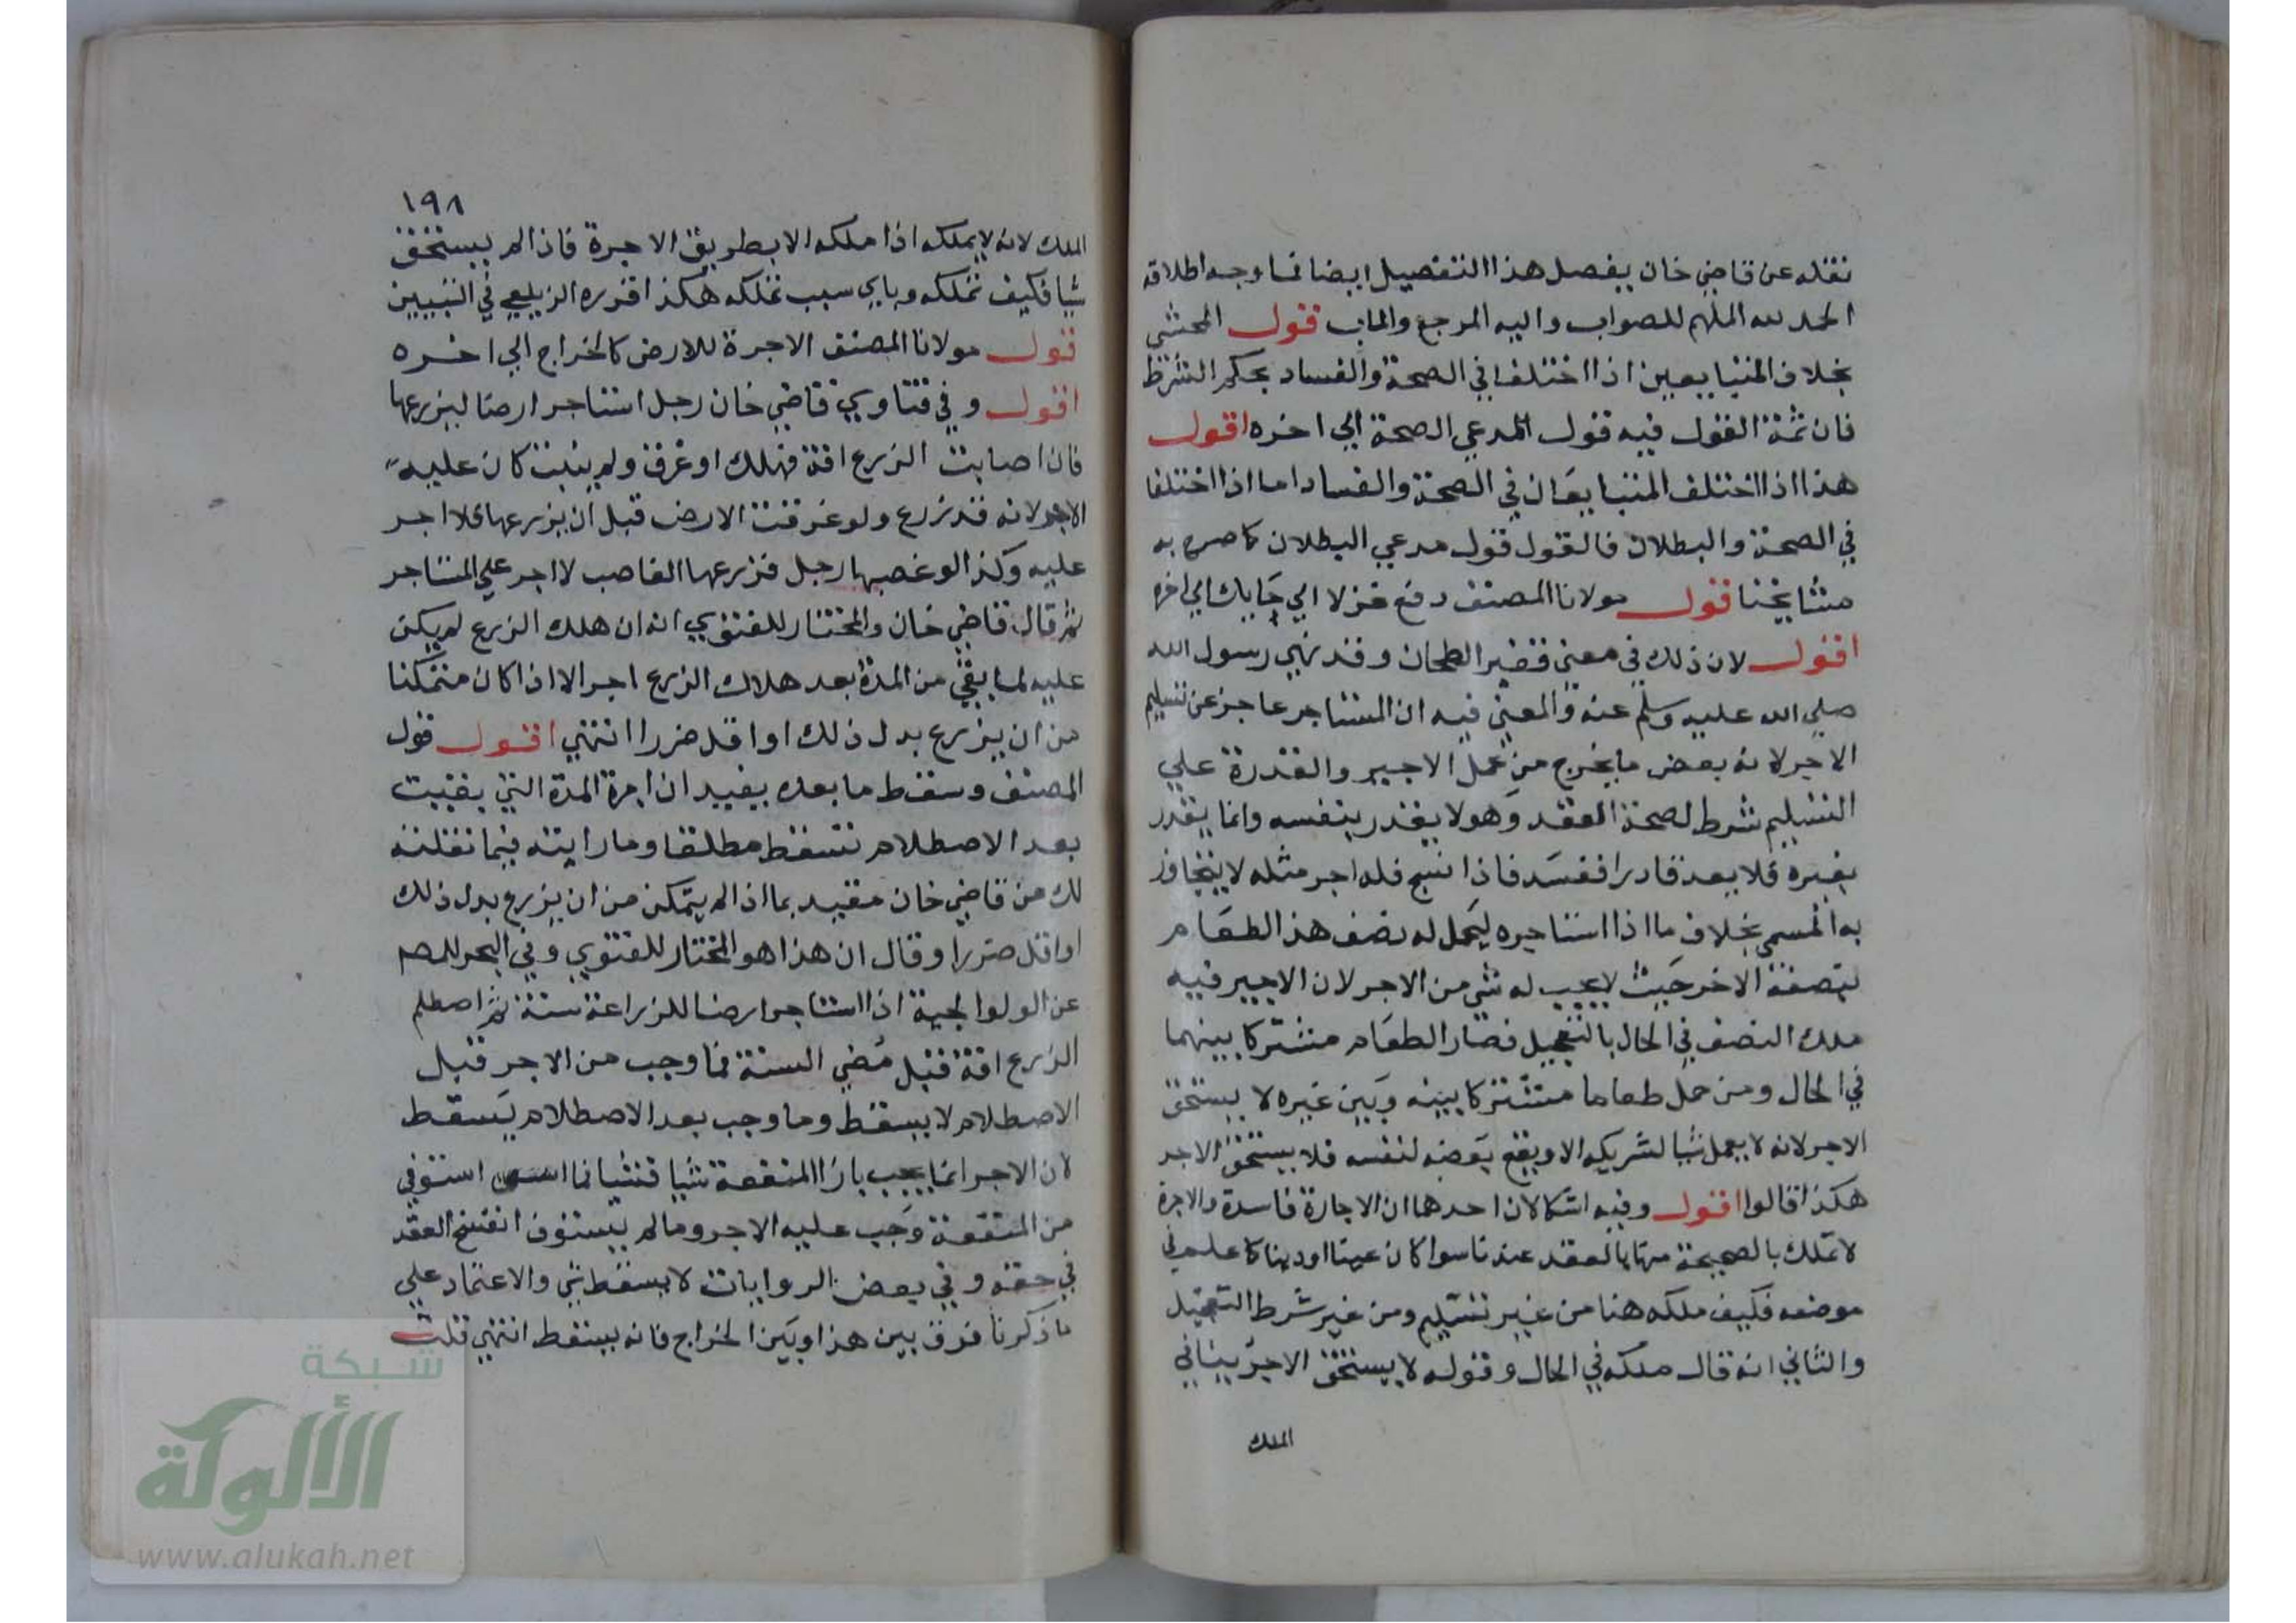 نقله عن قاضي خان يفصل هذا التفصيل ايضا فما وجه اطلاقه
الحمد لله الملهم للصواب واليه المرجع والماب قول المحشي
بخلاف المتبايعين اذا اختلفا في الصحة والفساد بحكم الشرط
فان ثمة القول فيه قول المدعي الصحة الي اخره اقول
هذا اذا اختلف المتبايعان في الصحة والفساد اما اذا اختلفا
في الصحة والبطلان فالقول قول مدعي البطلان كما صرح به
مشايخنا قول مولانا المصنف دفع غزلا الي حايك الي اخره
اقول لان ذلك في معني قفيز الطحان وقد نهي رسول الله
صلي الله عليه وسلم عنه والمعني فيه ان المستاجر عاجز عن تسليم
الاجر لانه بعض ما يخرج من عمل الاجير والقدرة علي
التسليم شرط لصحة العقد وهو لا يقدر بنفسه وانما يقدر
بغيره فلا يعد قادرا ففسد فاذا نسج فله اجر مثله لا يتجاوز
به المسمي بخلاف ما اذا استاجره ليحمل له نصف هذا الطعام
بنصفه الاخر حيث لا يجب له شي من الاجر لان الاجير فيه
ملك النصف في الحال بالتعجيل فصار الطعام مشتركا بينهما
في الحال ومن حمل طعاما مشتركا بينه وبين غيره لا يستحق
الاجر لانه لا يعمل شيا لشريكه الا ويقع بعضه لنفسه فلا يستحق الاجر
هكذا قالوا اقول وفيه اشكالان احدهما ان الاجارة فاسدة والاجرة
لا تملك بالصحيحة منها بالعقد عندنا سوا كان عينا او دينا كما علم في
موضعه فكيف ملكه هنا من غير تسليم ومن غير شرط التعجيل
والثاني انه قال ملكه في الحال وقوله لا يستحق الاجر ينافي
الملك
١٩٨
الملك لانه لا يملكه اذا ملكه الا بطريق الاجرة فاذا لم يستحق
شيا فكيف تملكه وباي سبب تملكه هكذا قرره الزيلعي في التبيين
قول مولانا المصنف الاجرة للارض كالخراج الي اخره
اقول وفي فتاوي قاضي خان رجل استاجر ارضا ليزرعها
فان اصابت الزرع افة فهلك او غرق ولم ينبت كان عليه
الاجر لانه قد زرع ولو غرقت الارض قبل ان يزرعها فلا اجر
عليه وكذا لو غصبها رجل فزرعها الغاصب لا اجر علي المستاجر
ثم قال قاضي خان والمختار للفتوي انه ان هلك الزرع لم يكن
عليه لما بقي من المدة بعد هلاك الزرع اجر الا اذا كان متمكنا
من ان يزرع بدل ذلك او اقل ضررا انتهي اقول قول
المصنف وسقط ما بعده يفيد ان اجرة المدة التي بقيت
بعد الاصطلام تسقط مطلقا وما رايته فيما نقلته
لك من قاضي خان مقيد بما اذا لم يتمكن من ان يزرع بدل ذلك
او اقل ضررا وقال ان هذا هو المختار للفتوي وفي البحر للمص
عن الولوالجية اذا استاجر ارضا للزراعة سنة ثم اصطلم
الزرع افة قبل مضي السنة فما وجب من الاجر قبل
الاصطلام لا يسقط وما وجب بعد الاصطلام يسقط
لان الاجر انما يجب بازا المنفعة شيا فشيا فما استوفي
من المنفعة وجب عليه الاجر وما لم يستوف انفسخ العقد
في حقه وفي بعض الروايات لا يسقط شي والاعتماد علي
ما ذكرنا فرق بين هذا وبين الخراج فانه يسقط انتهي قلت
شبكة
الألوكة
www.alukah.net